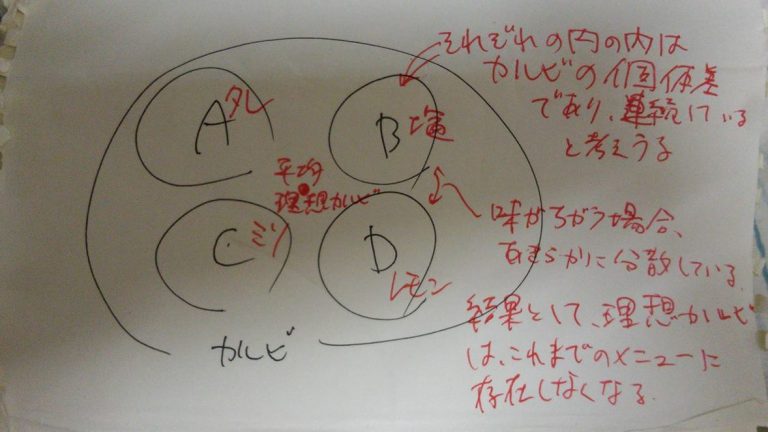 それぞれの円の内は
カルビの個体差
であり、連続している
と考えうる
A タレ
B 塩
平均
理想カルビ
C ミソ
D
レモン
味がちがう場合、
あきらかに分散している。
カルビ
結果として、理想カルビ
は、これまでのメニューに
存在しなくなる。